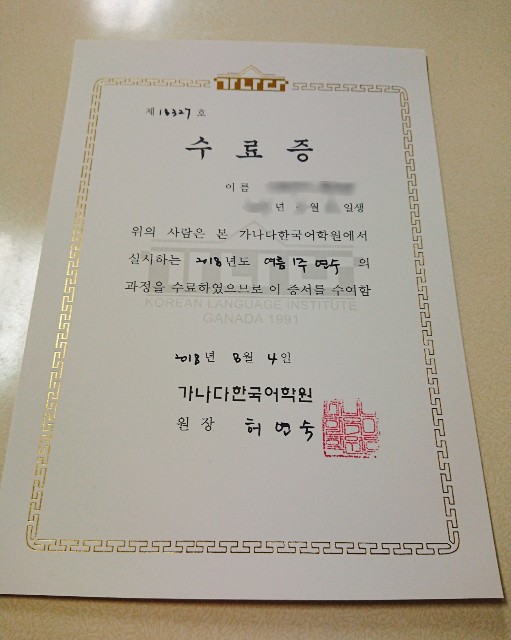 가나다
제 18327 호
수료증
이름
년 월 일생
위의 사람은 본 가나다한국어학원에서
실시하는 2018년도 여름 1주 연수 의
과정을 수료하였으므로 이 증서를 수여함
KOREAN LANGUAGE INSTITUTE
GANADA 1991
2018년 8월 4일
가나다한국어학원
원장 허연숙